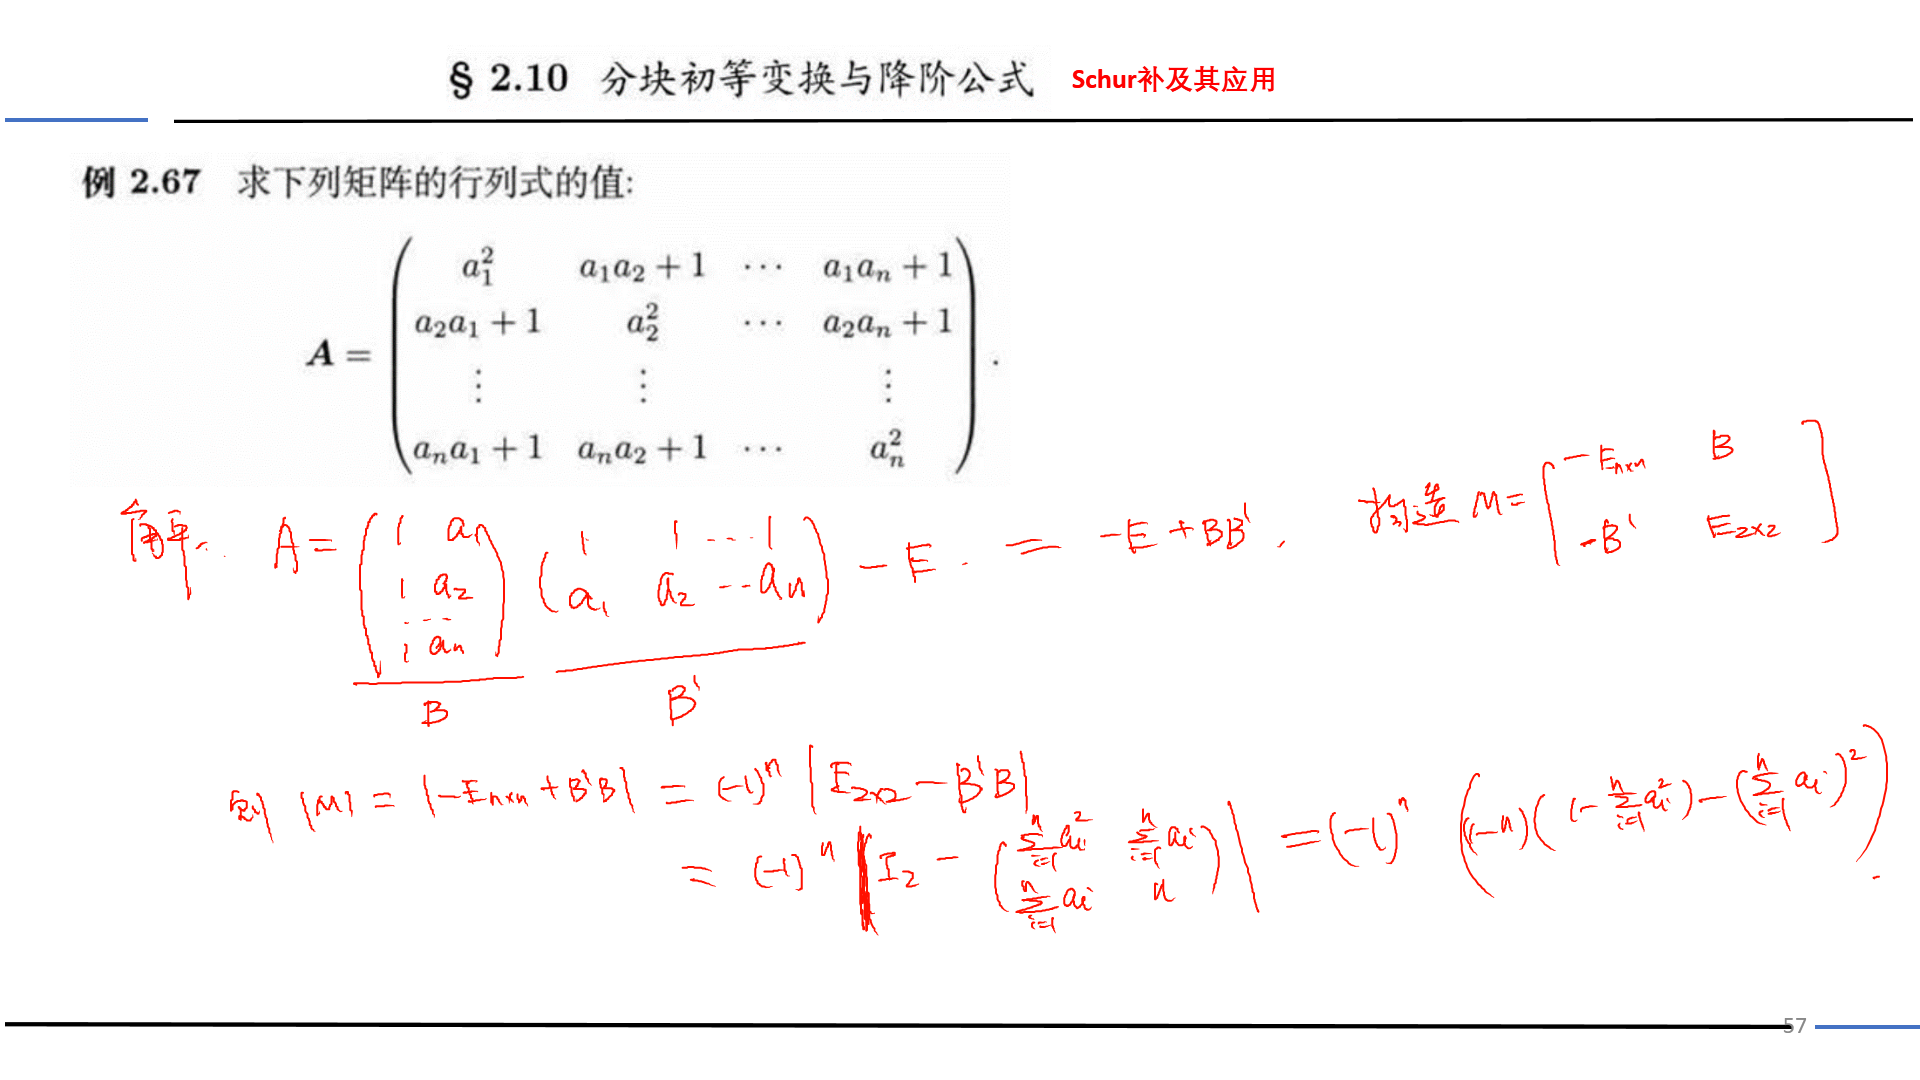 § 2.10 分块初等变换与降阶公式 Schur补及其应用
例 2.67 求下列矩阵的行列式的值:
A = ( a₁² a₁a₂ + 1 ⋯ a₁aₙ + 1
a₂a₁ + 1 a₂² ⋯ a₂aₙ + 1
⋮ ⋮ ⋮
aₙa₁ + 1 aₙa₂ + 1 ⋯ aₙ² ) .
解: A = ( 1 aₙ
1 a₂
⋯
1 aₙ ) ( 1 1 ⋯ 1
a₁ a₂ ⋯ aₙ ) − E . = −E + BB' , 构造 M = [ −Eₙₓₙ B
−B' E₂ₓ₂ ]
B B'
则 |M| = |−Eₙₓₙ + B'B| = (−1)ⁿ |E₂ₓ₂ − B'B|
= (−1)ⁿ | I₂ − ( Σᵢ₌₁ⁿ aᵢ² Σᵢ₌₁ⁿ aᵢ
Σᵢ₌₁ⁿ aᵢ n ) | = (−1)ⁿ ( (1−n)(1−Σᵢ₌₁ⁿ aᵢ²) − (Σᵢ₌₁ⁿ aᵢ)² ) .
57